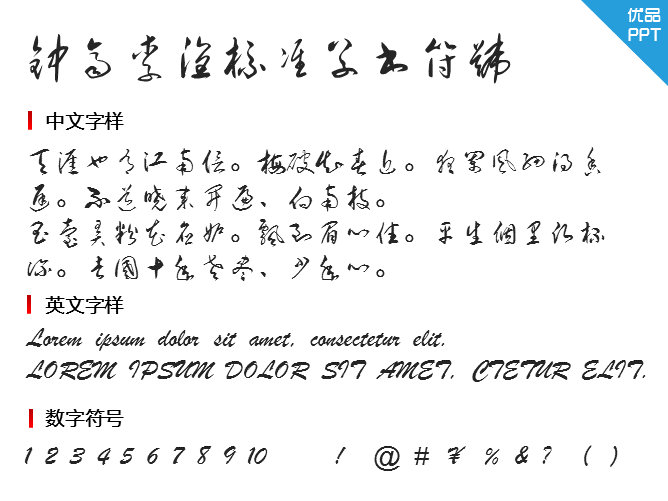 优品
PPT
钟齐李洤标准草书符號
中文字样
天涯也有江南信。梅破知春近。夜阑风细得香
迟。不道晓来开遍、向南枝。
玉台弄粉花应妒。飘到眉心住。平生個里愿杯
深。去國十年老尽、少年心。
英文字样
Lorem ipsum dolor sit amet, consectetur elit,
LOREM IPSUM DOLOR SIT AMET, CTETUR ELIT,
数字符号
1 2 3 4 5 6 7 8 9 10 ! @ # ¥ % & ? ( )